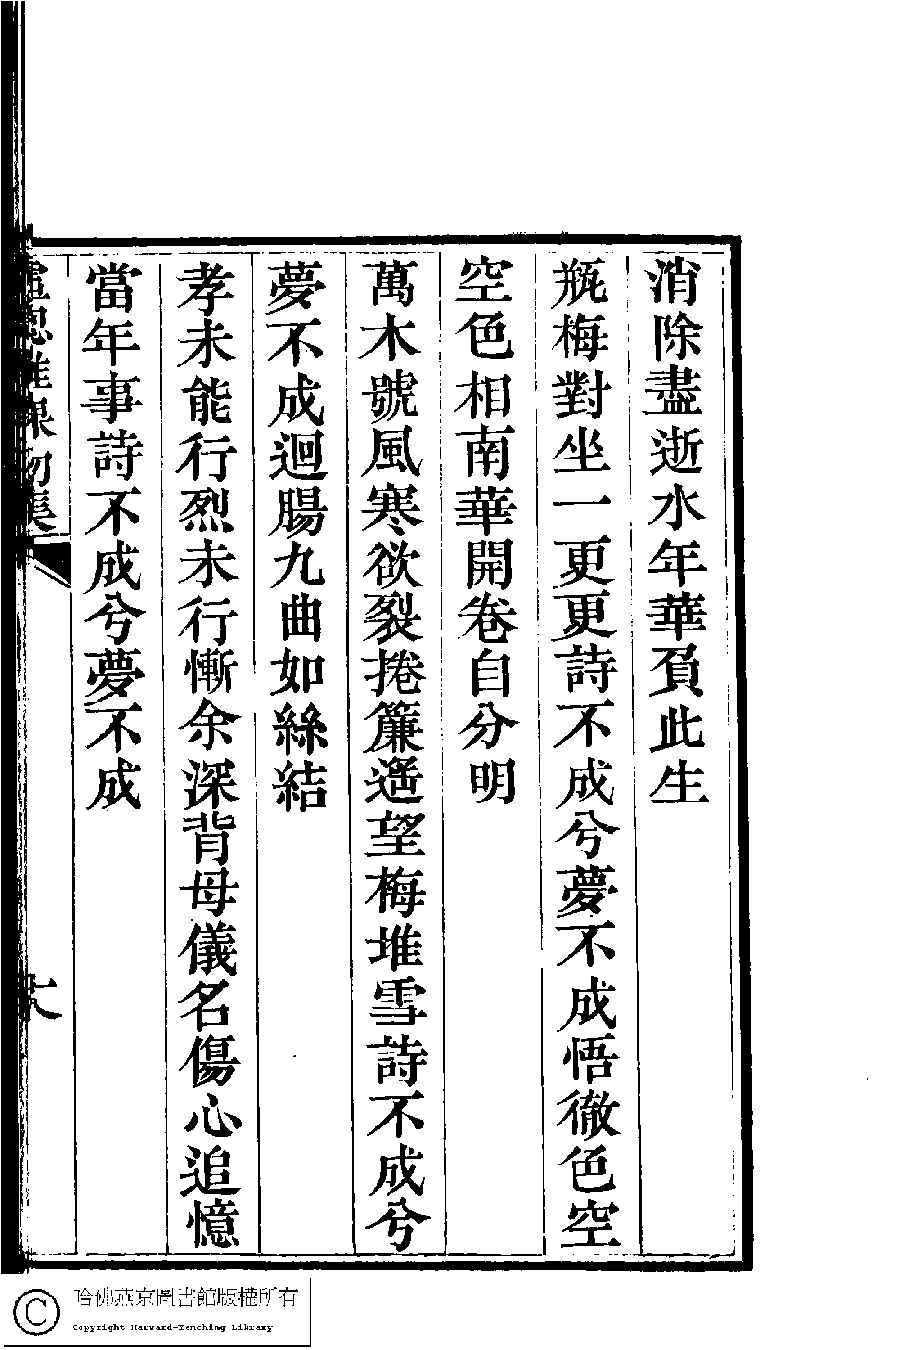 消除盡逝水年華負此生
瓶梅對坐一更更詩不成兮夢不成悟徹色空
空色相南華開卷自分明
萬木號風寒欲裂捲簾遙望梅堆雪詩不成兮
夢不成迴腸九曲如絲結
孝未能行烈未行慚余深背母儀名傷心追憶
當年事詩不成兮夢不成
哈佛燕京圖書館版權所有
Copyright Harvard-Yenching Library